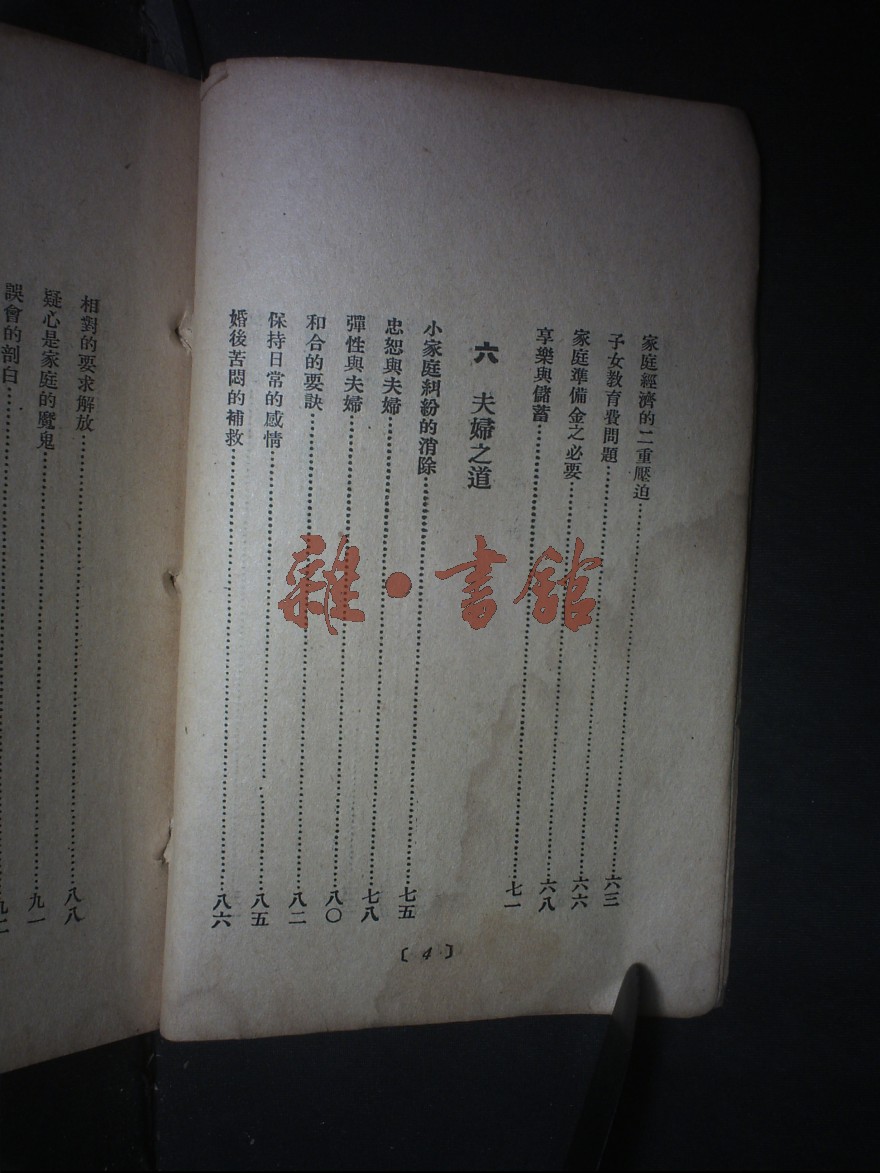 家庭經濟的二重壓迫……六三
子女教育費問題……六六
家庭準備金之必要……六八
享樂與儲蓄……七一
六 夫婦之道
小家庭糾紛的消除……七五
忠恕與夫婦……七八
彈性與夫婦……八〇
和合的要訣……八二
保持日常的感情……八五
婚後苦悶的補救……八六
〔4〕
相對的要求解放……八八
疑心是家庭的魔鬼……九一
誤會的剖白……九二
雜·書館